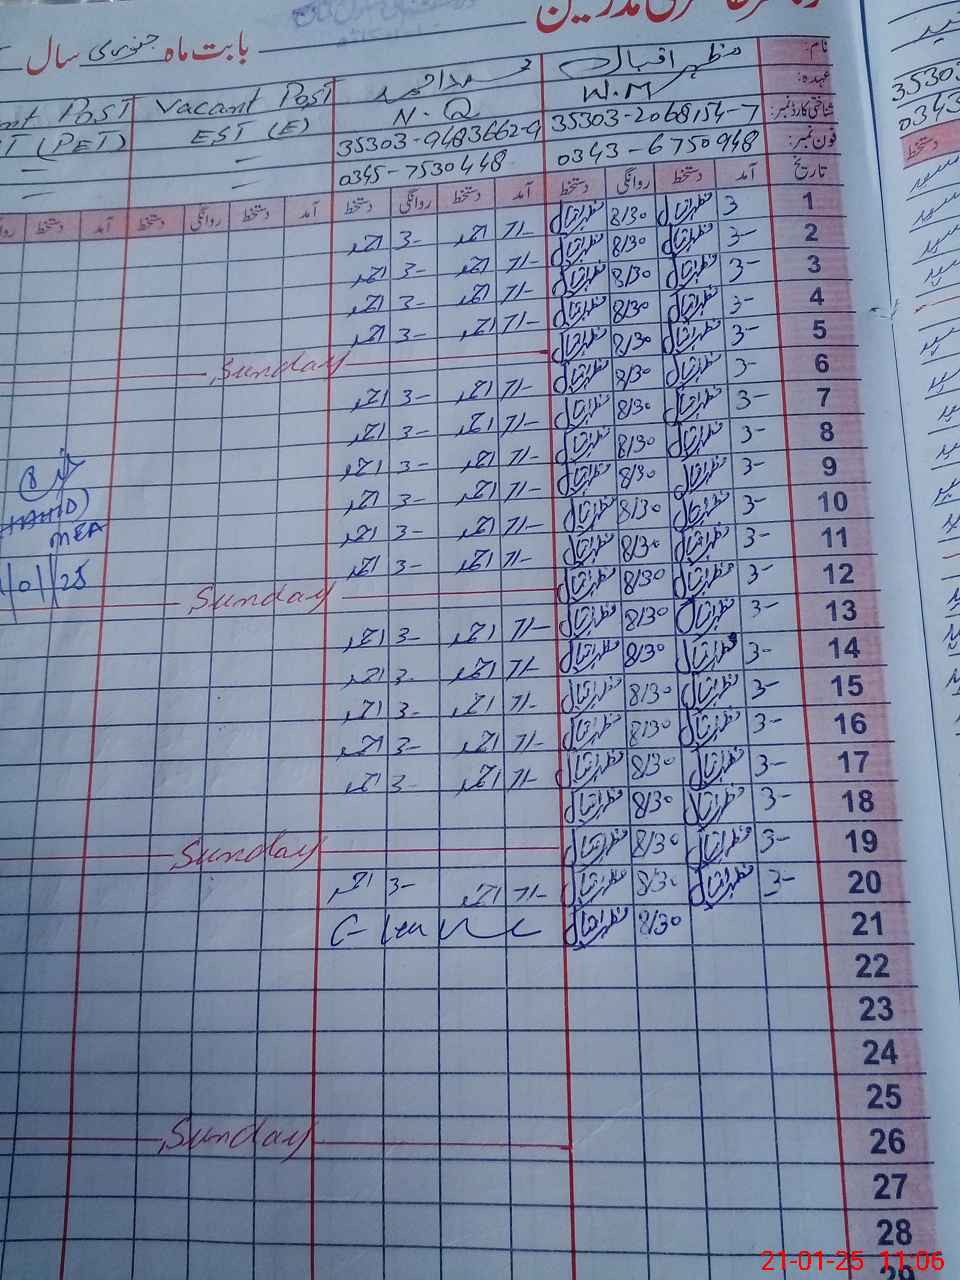 بابت ماہ جنوری سال
نام: مظہر اقبال
عہدہ: W.M N.Q Vacant Post Vacant Post
EST (E) (PET)
شناختی کارڈ نمبر: 35303-2068154-7 35303-9483662-9
فون نمبر: 0343-6750948 0345-7530448 — —
تاریخ آمد دستخط روانگی دستخط آمد دستخط روانگی دستخط آمد دستخط روانگی دستخط آمد دستخط
1 3 مظہر اقبال 8/30 مظہر اقبال 7/- احمد 3- احمد
2 3- مظہر اقبال 8/30 مظہر اقبال 7/- احمد 3- احمد
3 3- مظہر اقبال 8/30 مظہر اقبال 7/- احمد 3- احمد
4 3- مظہر اقبال 8/30 مظہر اقبال 7/- احمد 3- احمد
5 3- مظہر اقبال 8/30 مظہر اقبال Sunday
6 3- مظہر اقبال 8/30 مظہر اقبال 7/- احمد 3- احمد
7 3- مظہر اقبال 8/30 مظہر اقبال 7/- احمد 3- احمد
8 3- مظہر اقبال 8/30 مظہر اقبال 7/- احمد 3- احمد
9 3- مظہر اقبال 8/30 مظہر اقبال 7/- احمد 3- احمد
10 3- مظہر اقبال 8/30 مظہر اقبال 7/- احمد 3- احمد
11 3- مظہر اقبال 8/30 مظہر اقبال 7/- احمد 3- احمد
12 3- مظہر اقبال 8/30 مظہر اقبال Sunday
13 3- مظہر اقبال 8/30 مظہر اقبال 7/- احمد 3- احمد
14 3- مظہر اقبال 8/30 مظہر اقبال 7/- احمد 3- احمد
15 3- مظہر اقبال 8/30 مظہر اقبال 7/- احمد 3- احمد
16 3- مظہر اقبال 8/30 مظہر اقبال 7/- احمد 3- احمد
17 3- مظہر اقبال 8/30 مظہر اقبال 7/- احمد 3- احمد
18 3- مظہر اقبال 8/30 مظہر اقبال
19 3- مظہر اقبال 8/30 مظہر اقبال Sunday
20 3- مظہر اقبال 8/30 مظہر اقبال 7/- احمد 3- احمد
21 8/30 مظہر اقبال
22
23
24
25
26 Sunday
27
28
29
MEA
/01/25
35303
0343
دستخط
21-01-25 11:06